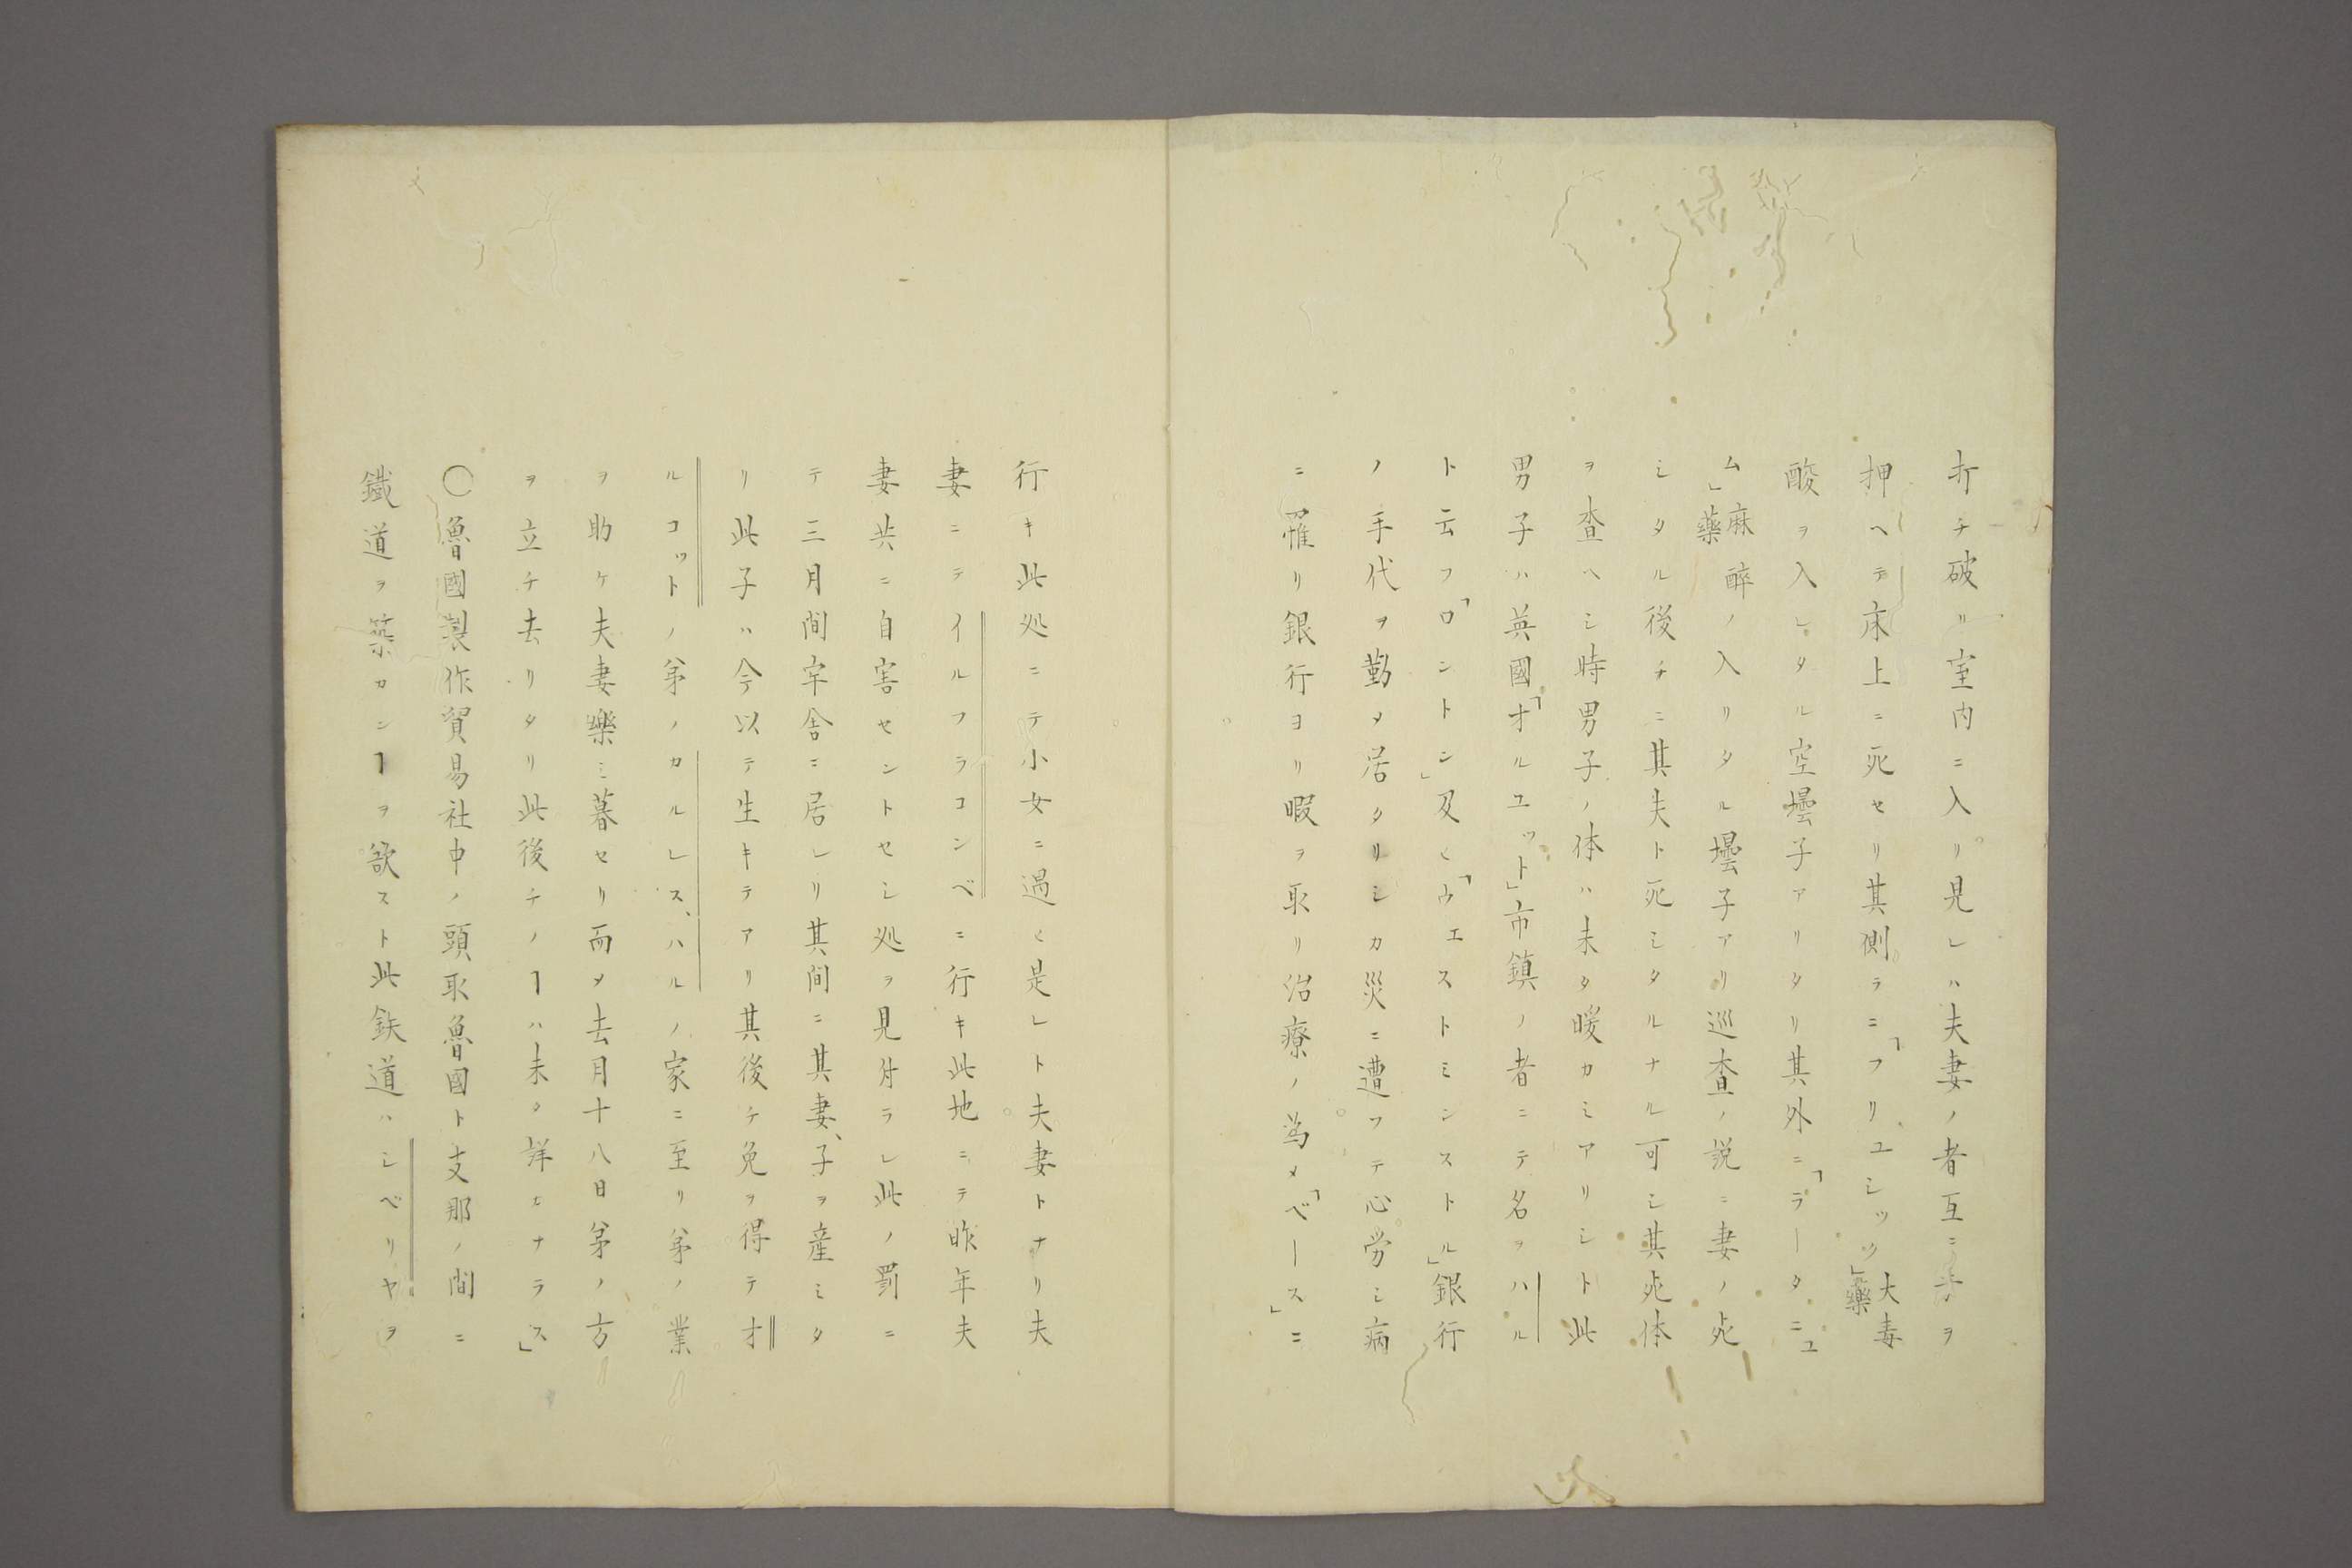 折チ破リ室内ニ入リ見レハ夫妻ノ者互ニ手ヲ
押ヘテ床上ニ死セリ其側ラニ「フリユシツツ」大毒藥
酸ヲ入レタル空壜子アリタリ其外ニ「ラータニユ
ム」麻醉藥ノ入リタル壜子アリ巡査ノ説ニ妻ノ死
シタル後チニ其夫ト死シタルナル可シ其死体
ヲ査ヘシ時男子ノ体ハ未タ暖カミアリシト此
男子ハ英國「オルユット」市鎮ノ者ニテ名ヲハル
ト云フ「ロントン」及ヒ「ウエストミンストル」銀行
ノ手代ヲ勤メ居タリシカ災ニ遭フテ心労シ病
ニ罹リ銀行ヨリ暇ヲ取リ治療ノ為メ「ベース」ニ
行キ此処ニテ小女ニ過ヒ是レト夫妻トナリ夫
妻ニテイルフラコンベニ行キ此地ニテ昨年夫
妻共ニ自害セントセシ処ヲ見付ラレ此ノ罰ニ
テ三月間牢舎ニ居レリ其間ニ其妻、子ヲ産ミタ
リ此子ハ今以テ生キテアリ其後チ免ヲ得テオ
ルコットノ弟ノカルレス、ハルノ家ニ至リ弟ノ業
ヲ助ケ夫妻樂ミ暮セリ而メ去月十八日弟ノ方
ヲ立チ去リタリ此後チノヿハ未タ詳カナラス」
〇魯國製作貿易社中ノ頭取魯國ト支那ノ間ニ
鐵道ヲ築カンヿヲ欲スト此鉄道ハシベリヤヲ